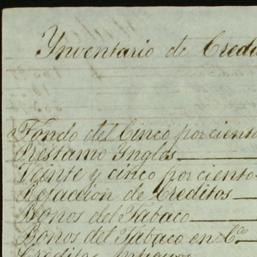 Ynventario de Credi
Fondo del Cinco por ciento
Prestamo Ynglés
Veinte y cinco por ciento
Refaccion de Creditos
Bonos del Tabaco
Bonos del Tabaco en Cta
Creditos Antiguos